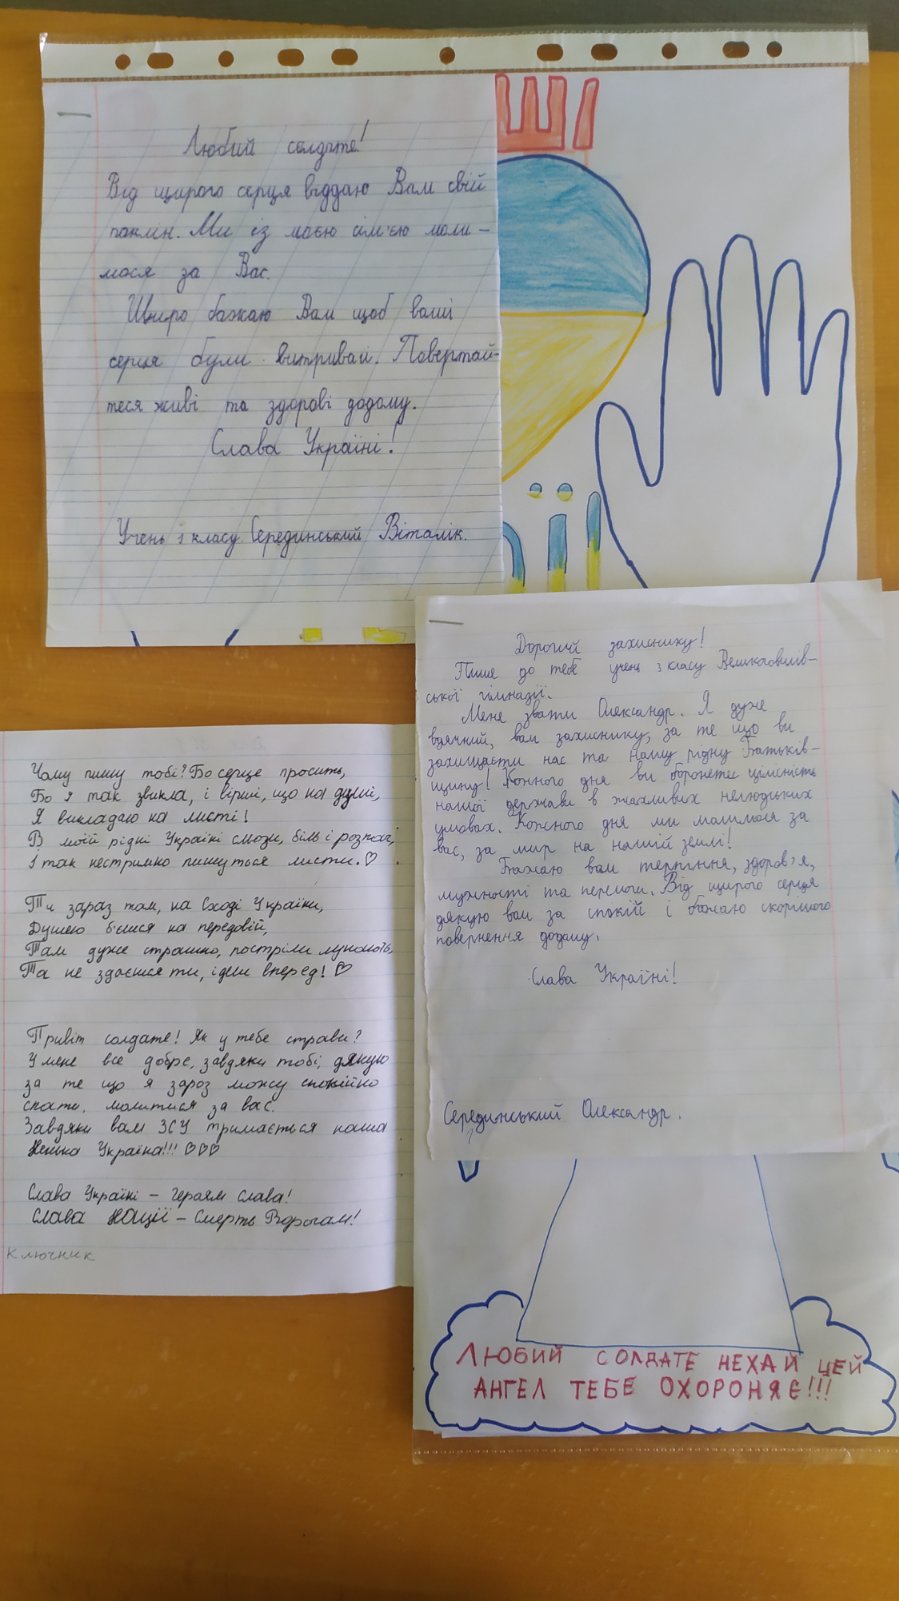 Любий солдате!
Від щирого серця віддаю Вам свій
поклін. Ми із моєю сім'єю моли-
мося за Вас.
Щиро бажаю Вам щоб ваші
серця були витривалі. Повертай-
теся живі та здорові додому.
Слава Україні!
Учень 1 класу Серединський Віталік.
Дорогий захиснику!
Пише до тебе учень 3 класу
ської гімназії.
Мене звати Олександр. Я дуже
вдячний, вам захиснику, за те що ви
захищаєти нас та нашу рідну Батьків-
щину! Кожного дня ви боронете цілісність
нашої держави в жахливих нелюдських
умовах. Кожного дня ми молимося за
вас, за мир на нашій землі!
Бажаю вам терпіння, здоров'я,
мужності та перемоги. Від щирого серця
дякую вам за спокій і бажаю скорішого
повернення додому.
Слава Україні!
Серединський Олександр.
Чому пишу тобі? Бо серце просить,
Бо я так звикла, і вірші, що на душі,
Я викладаю на листі!
В моїй рідні Україні сльози, біль і розпач,
І так нестримно пишуться листи.
Ти зараз там, на Сході України,
Душею б'єшся на передовій,
Там дуже страшно, постріли лунають,
Та не здаєшся ти, ідеш вперед!
Привіт солдате! Як у тебе справи?
У мене все добре, завдяки тобі, дякую
за те що я зараз можу спокійно
спати. молитися за вас.
Завдяки вам ЗСУ тримається наша
Ненька Україна!!!
Слава Україні – Героям слава!
Слава Нації – Смерть Ворогам!
Ключник
ЛЮБИЙ СОЛДАТЕ НЕХАЙ ЦЕЙ
АНГЕЛ ТЕБЕ ОХОРОНЯЄ!!!